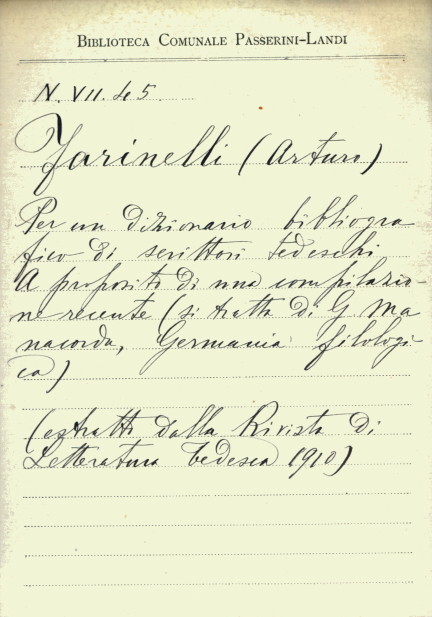 BIBLIOTECA COMUNALE PASSERINI-LANDI
N. VII. 45
Farinelli (Arturo)
Per un dizionario bibliogra
fico di scrittori tedeschi
A proposito di una compilazio-
ne recente (si tratta di G Ma
nacorda, Germania filologi-
ca)
(estratto dalla Rivista di
Letteratura tedesca 1910)